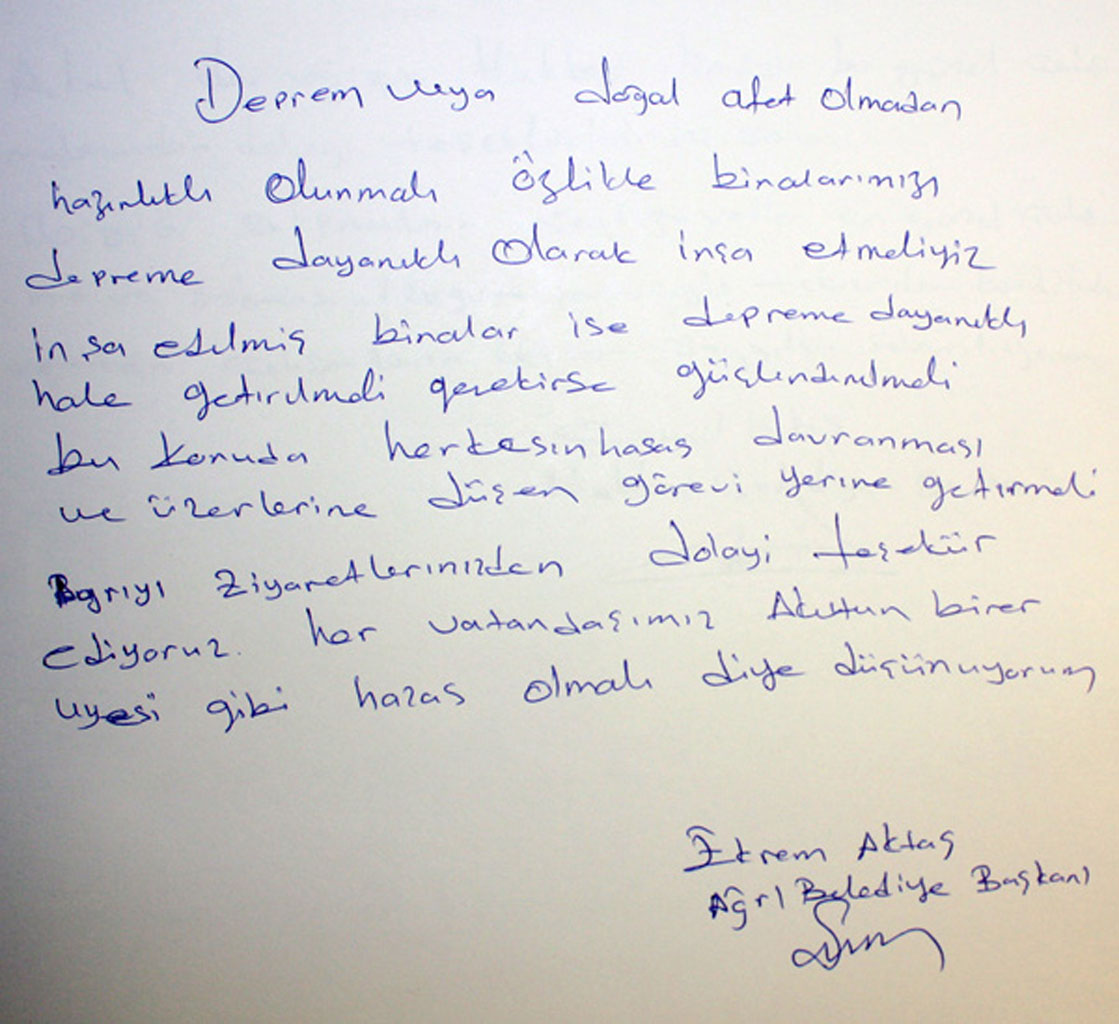 Deprem veya doğal afet olmadan
hazırlıklı olunmalı özlikle binalarımızı
depreme dayanıklı olarak inşa etmeliyiz
inşa edilmiş binalar ise depreme dayanıklı
hale getirilmeli gerekirse güçlendirilmeli
bu konuda herkesin hasas davranması
ve üzerlerine düşen görevi yerine getirmeli
Agrıyı ziyaretlerinizden dolayi teşekür
ediyoruz. her vatandaşımız Akutun birer
uyesi gibi hazas olmalı diye düşünuyorum
Ekrem Aktaş
Ağrı Belediye Başkanı